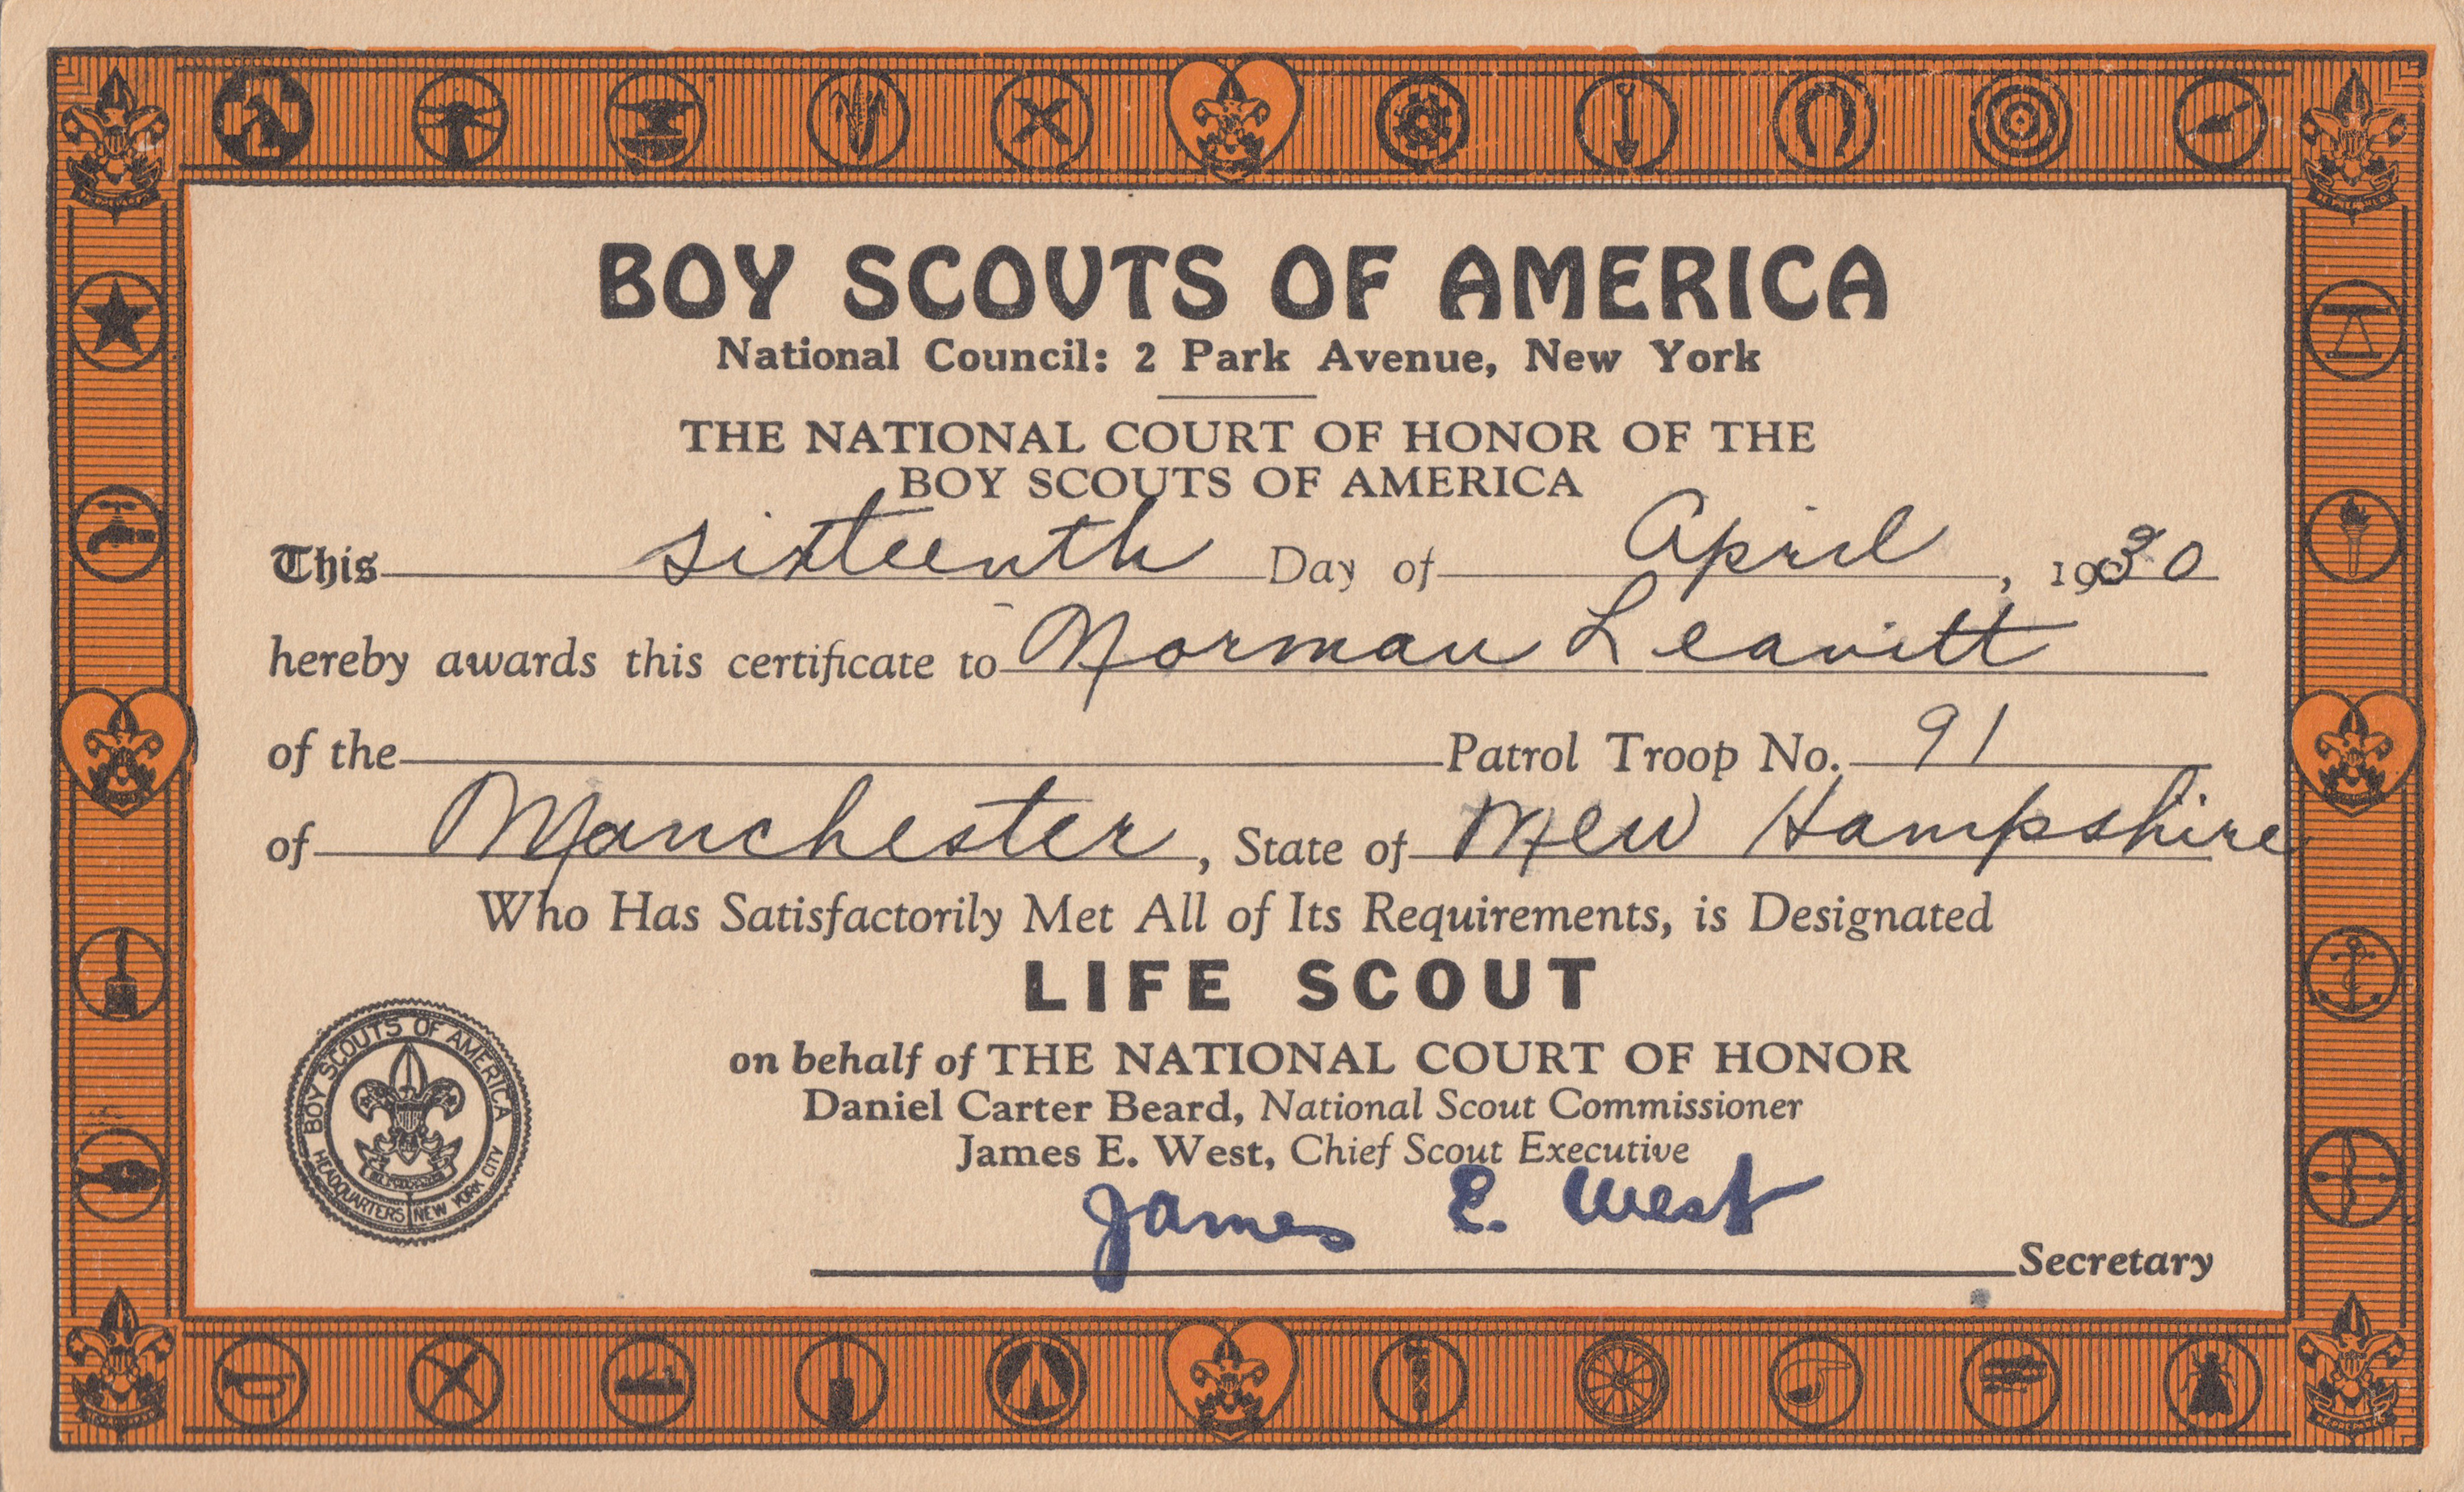 BOY SCOUTS OF AMERICA
National Council: 2 Park Avenue, New York
THE NATIONAL COURT OF HONOR OF THE
BOY SCOUTS OF AMERICA
This sixteenth Day of April, 1930
hereby awards this certificate to Norman Leavitt
of the Patrol Troop No. 91
of Manchester, State of New Hampshire
Who Has Satisfactorily Met All of Its Requirements, is Designated
LIFE SCOUT
on behalf of THE NATIONAL COURT OF HONOR
Daniel Carter Beard, National Scout Commissioner
James E. West, Chief Scout Executive
James E. West
Secretary
BOY SCOUTS OF AMERICA
HEADQUARTERS NEW YORK CITY
BE PREPARED